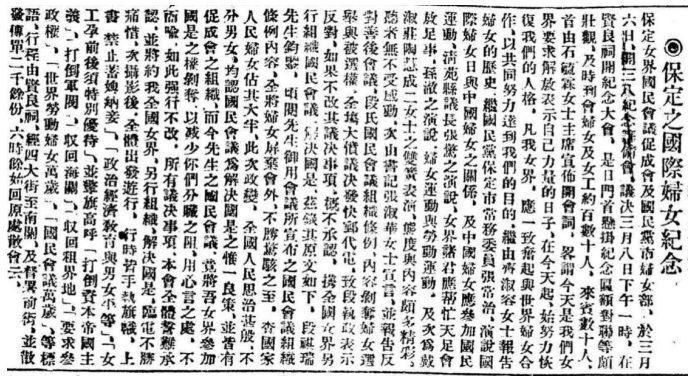 ◎保定之國際婦女紀念
保定女界國民會議促成會及國民黨市婦女部、於三月
六日、開三八紀念籌備會、議決三月八日下午一時、在
賢良祠開紀念大會、是日門首懸掛紀念區額對聯等頗
壯觀、及時到會婦女及女工約百數十人、來賓數十人、
首由石毓霖女士主席宣佈開會詞、畧謂今天是我們女
界要求解放表示自己力量的日子、在今天起、始努力恢
復我們的人格、凡我女界、應一致奮起與世界婦女合
作、以共同努力達到我們的目的、繼由齊淑容女士報告
婦女的歷史、繼國民黨保定市常務委員張常治、演說國
際婦女日與中國婦女之關係、及中國婦女應參加國民
運動、清苑縣議長張 之演說、女界諸君應幫忙天足會
放足事、孫澈之演說、婦女運動與勞動運動、及次為戴
淑莊陶慧成二女士之雙簧表演、態度與內容頗多精彩、
聽者無不受感動、次由書記張淑華女士宣言、並報告反
對善後會議、段氏國民會議組織條例、內容剝奪婦女選
舉與被選權、全塲大憤議決發快郵代電、致段執政表示
反對、如果不改其議決事項、槪不承認、 全國女界另
行組織國民會議、解決國是、茲錄其原文如下、段祺瑞
先生鈞鑒、頃閱先生御用會議所宣布之國民會議組織
條例內容、全將婦女屏棄會外、不勝驚駭之至、查國家
人民婦女佔其大半、此次政變、全國人民思治甚殷、不
分男女、均認國民會議為解決國是之惟一良策、並皆有
促成會之組織、而今先生之國民會議、竟將吾女界參加
國是之權剝奪、以減少你們分臟之阻、用心言之處、不
而喻、如此强行不改、所有議決事項、本會全體誓難承
認、並將約我全國女界、另行組織、解決國是、臨電不勝
痛惜、次攝影後、全體出發遊行、行時皆手執旗幟、上
書「禁止蓄婢納妾」、「政治經濟教育與男女平等」、「女
工孕前後須特別優待」、並擎旗高呼「打倒資本帝國主
義」、「打倒軍閥」、「收回海關」、「收回租界地」、「要求參
政權」、「世界勞動婦女萬歲」、「國民會議萬歲」、等標
語、行程由賢良祠、經四大街至南關、及督署前街、並散
發傳單二千餘份、六時餘始回原處散會云、